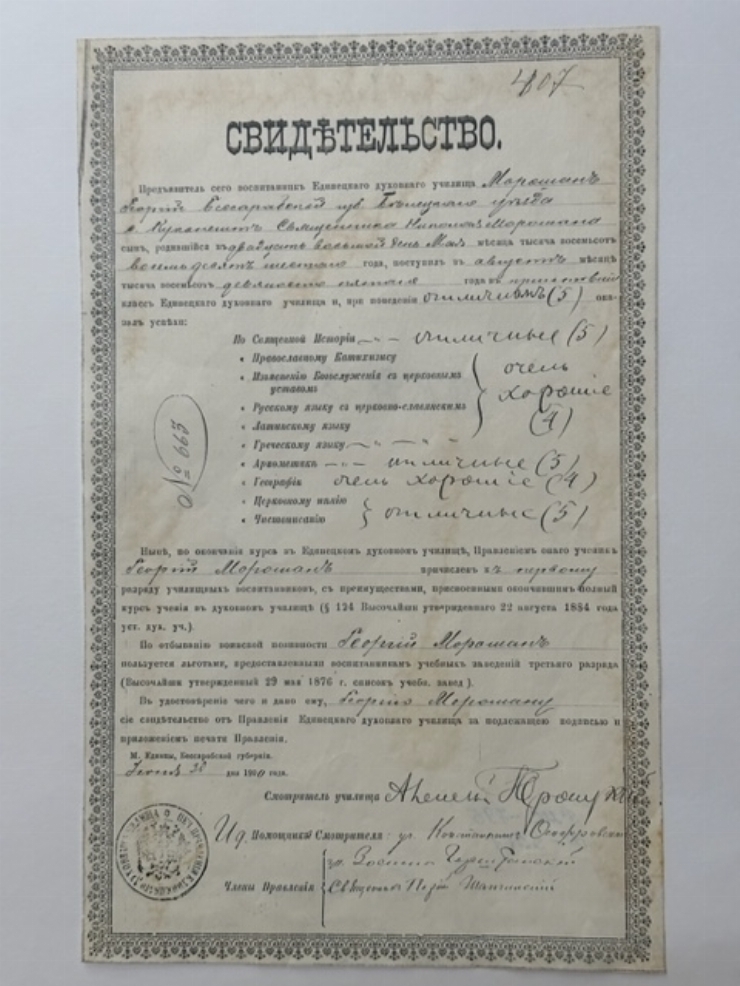 407
СВИДѢТЕЛЬСТВО.
Предъявитель сего воспитанникъ Единецкаго духовнаго училища Морошанъ
Георгій Бессарабской губ Бѣлецкаго уѣзда
с. Священника Морошана
сынъ, родившійся въ двадцать восьмой день Мая мѣсяца тысяча восемьсотъ
восемьдесятъ шестого года, поступилъ въ августѣ мѣсяцѣ
тысяча восемьсотъ девяносто пятаго года въ
классъ Единецкаго духовнаго училища и, при поведеніи отличномъ (5) ока-
залъ успѣхи:
По Священной Исторіи отличные (5)
" Православному Катихизису
" Изъясненію Богослуженія съ церковнымъ уставомъ
" Русскому языку съ церковно-славянскимъ
" Латинскому языку
очень
хорошіе
(4)
" Греческому языку " " "
" Ариѳметикѣ отличные (5)
" Географіи очень хорошіе (4)
" Церковному пѣнію
" Чистописанію
отличные (5)
№ 663
Нынѣ, по окончаніи курса въ Единецкомъ духовномъ училищѣ, Правленіемъ онаго ученикъ
Георгій Морошанъ причисленъ къ первому
разряду училищныхъ воспитанниковъ, съ преимуществами, присвоенными окончившимъ полный
курсъ ученія въ духовномъ училищѣ (§ 124 Высочайше утвержденнаго 22 августа 1884 года
уст. дух. уч.).
По отбыванію воинской повинности Георгій Морошанъ
пользуется льготами, предоставленными воспитанникамъ учебныхъ заведеній третьяго разряда
(Высочайше утвержденный 29 мая 1876 г. списокъ учебн. завед.).
Въ удостовѣреніе чего и дано ему, Георгію Морошану
сіе свидѣтельство отъ Правленія Единецкаго духовнаго училища за надлежащею подписью и
приложеніемъ печати Правленія.
М. Единцы, Бессарабской губерніи.
Іюня дня 1900 года.
Смотритель училища
И д. Помощника Смотрителя: Константинъ
Члены Правленія
Священникъ